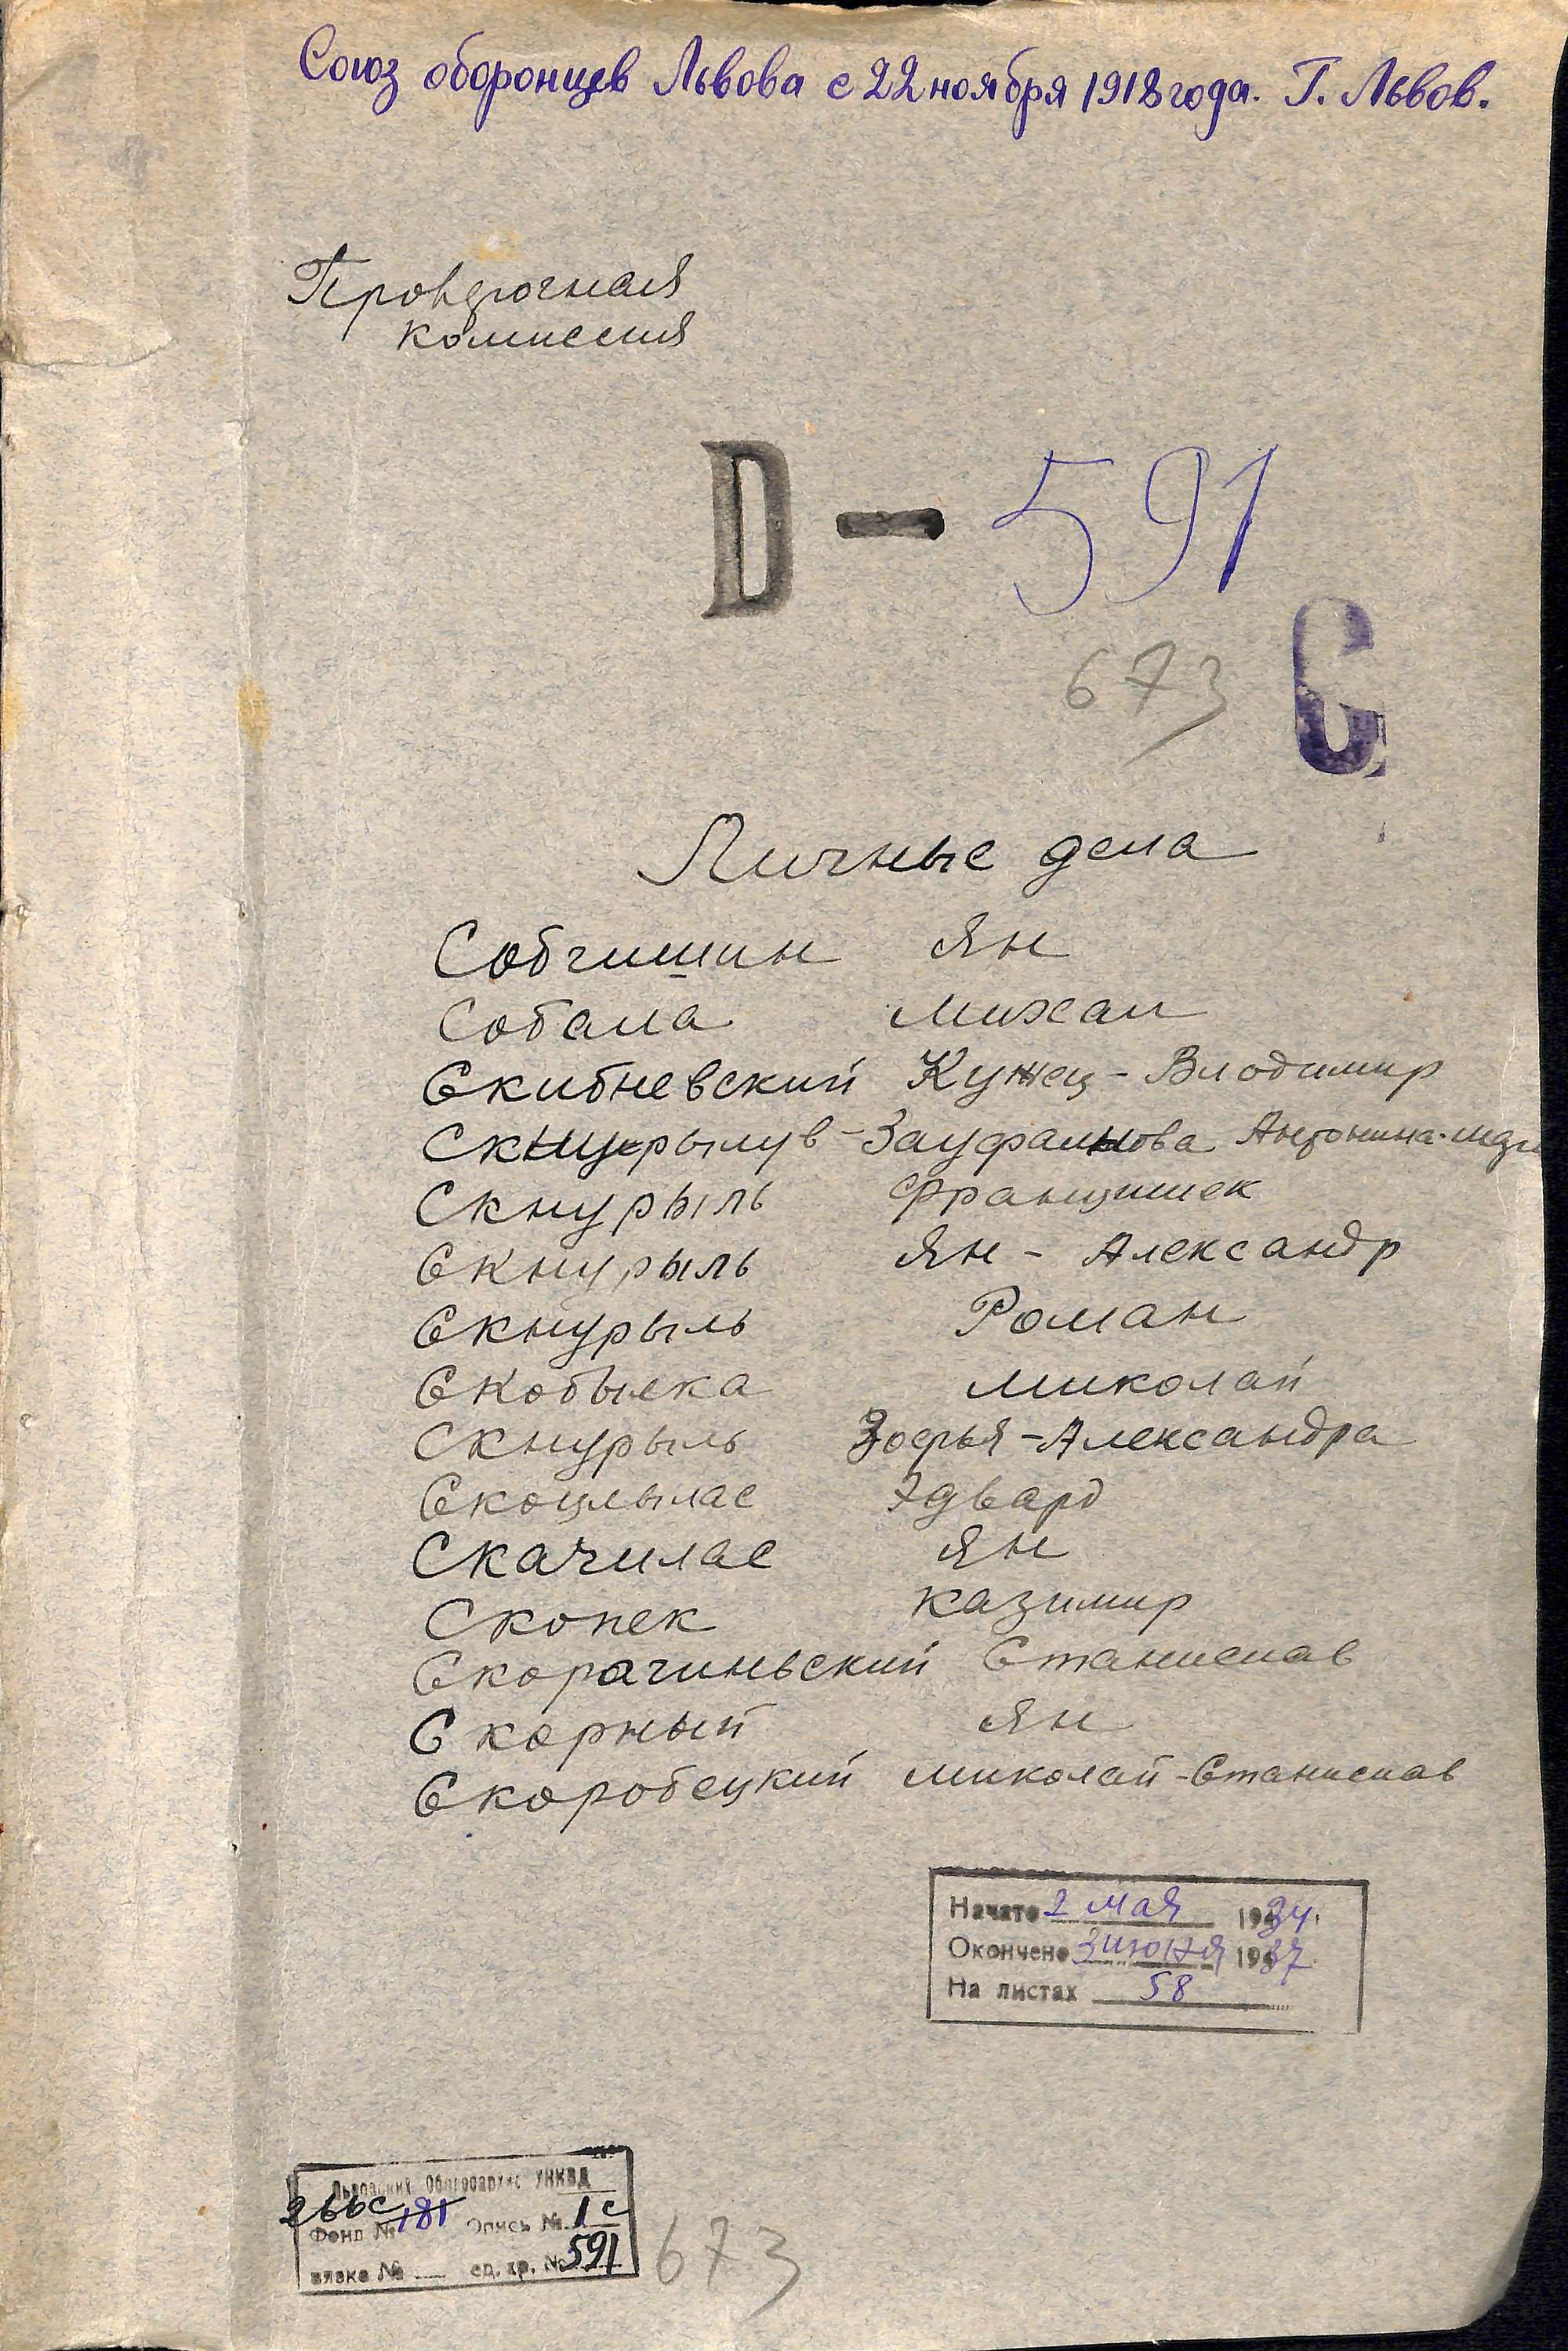 Союз оборонцев Львова с 22 ноября 1918 года. Г. Львов.
Проверочная
комиссия
D — 591
673 С
Личные дела
Собчишин Ян
Собала Михал
Скибневский Кужец - Влодимир
Скнурылув - Зауфалнова Антонина
Скнурыль Францишек
Скнурыль Ян - Александр
Скнурыль Роман
Скобылка Миколай
Скнурыль Зофья - Александра
Скоцлылас Эдвард
Скачилас Ян
Скопек Казимир
Скорачиньский Станислав
Скорный Ян
Скоробецкий Миколай - Станислав
Начато 2 мая 1934
Окончено 3 июня 1937
На листах 58
Львовский Облгосархив УНКВД
266с
Фонд № 181 Опись № 1с
вязка № ед. хр. № 591
673